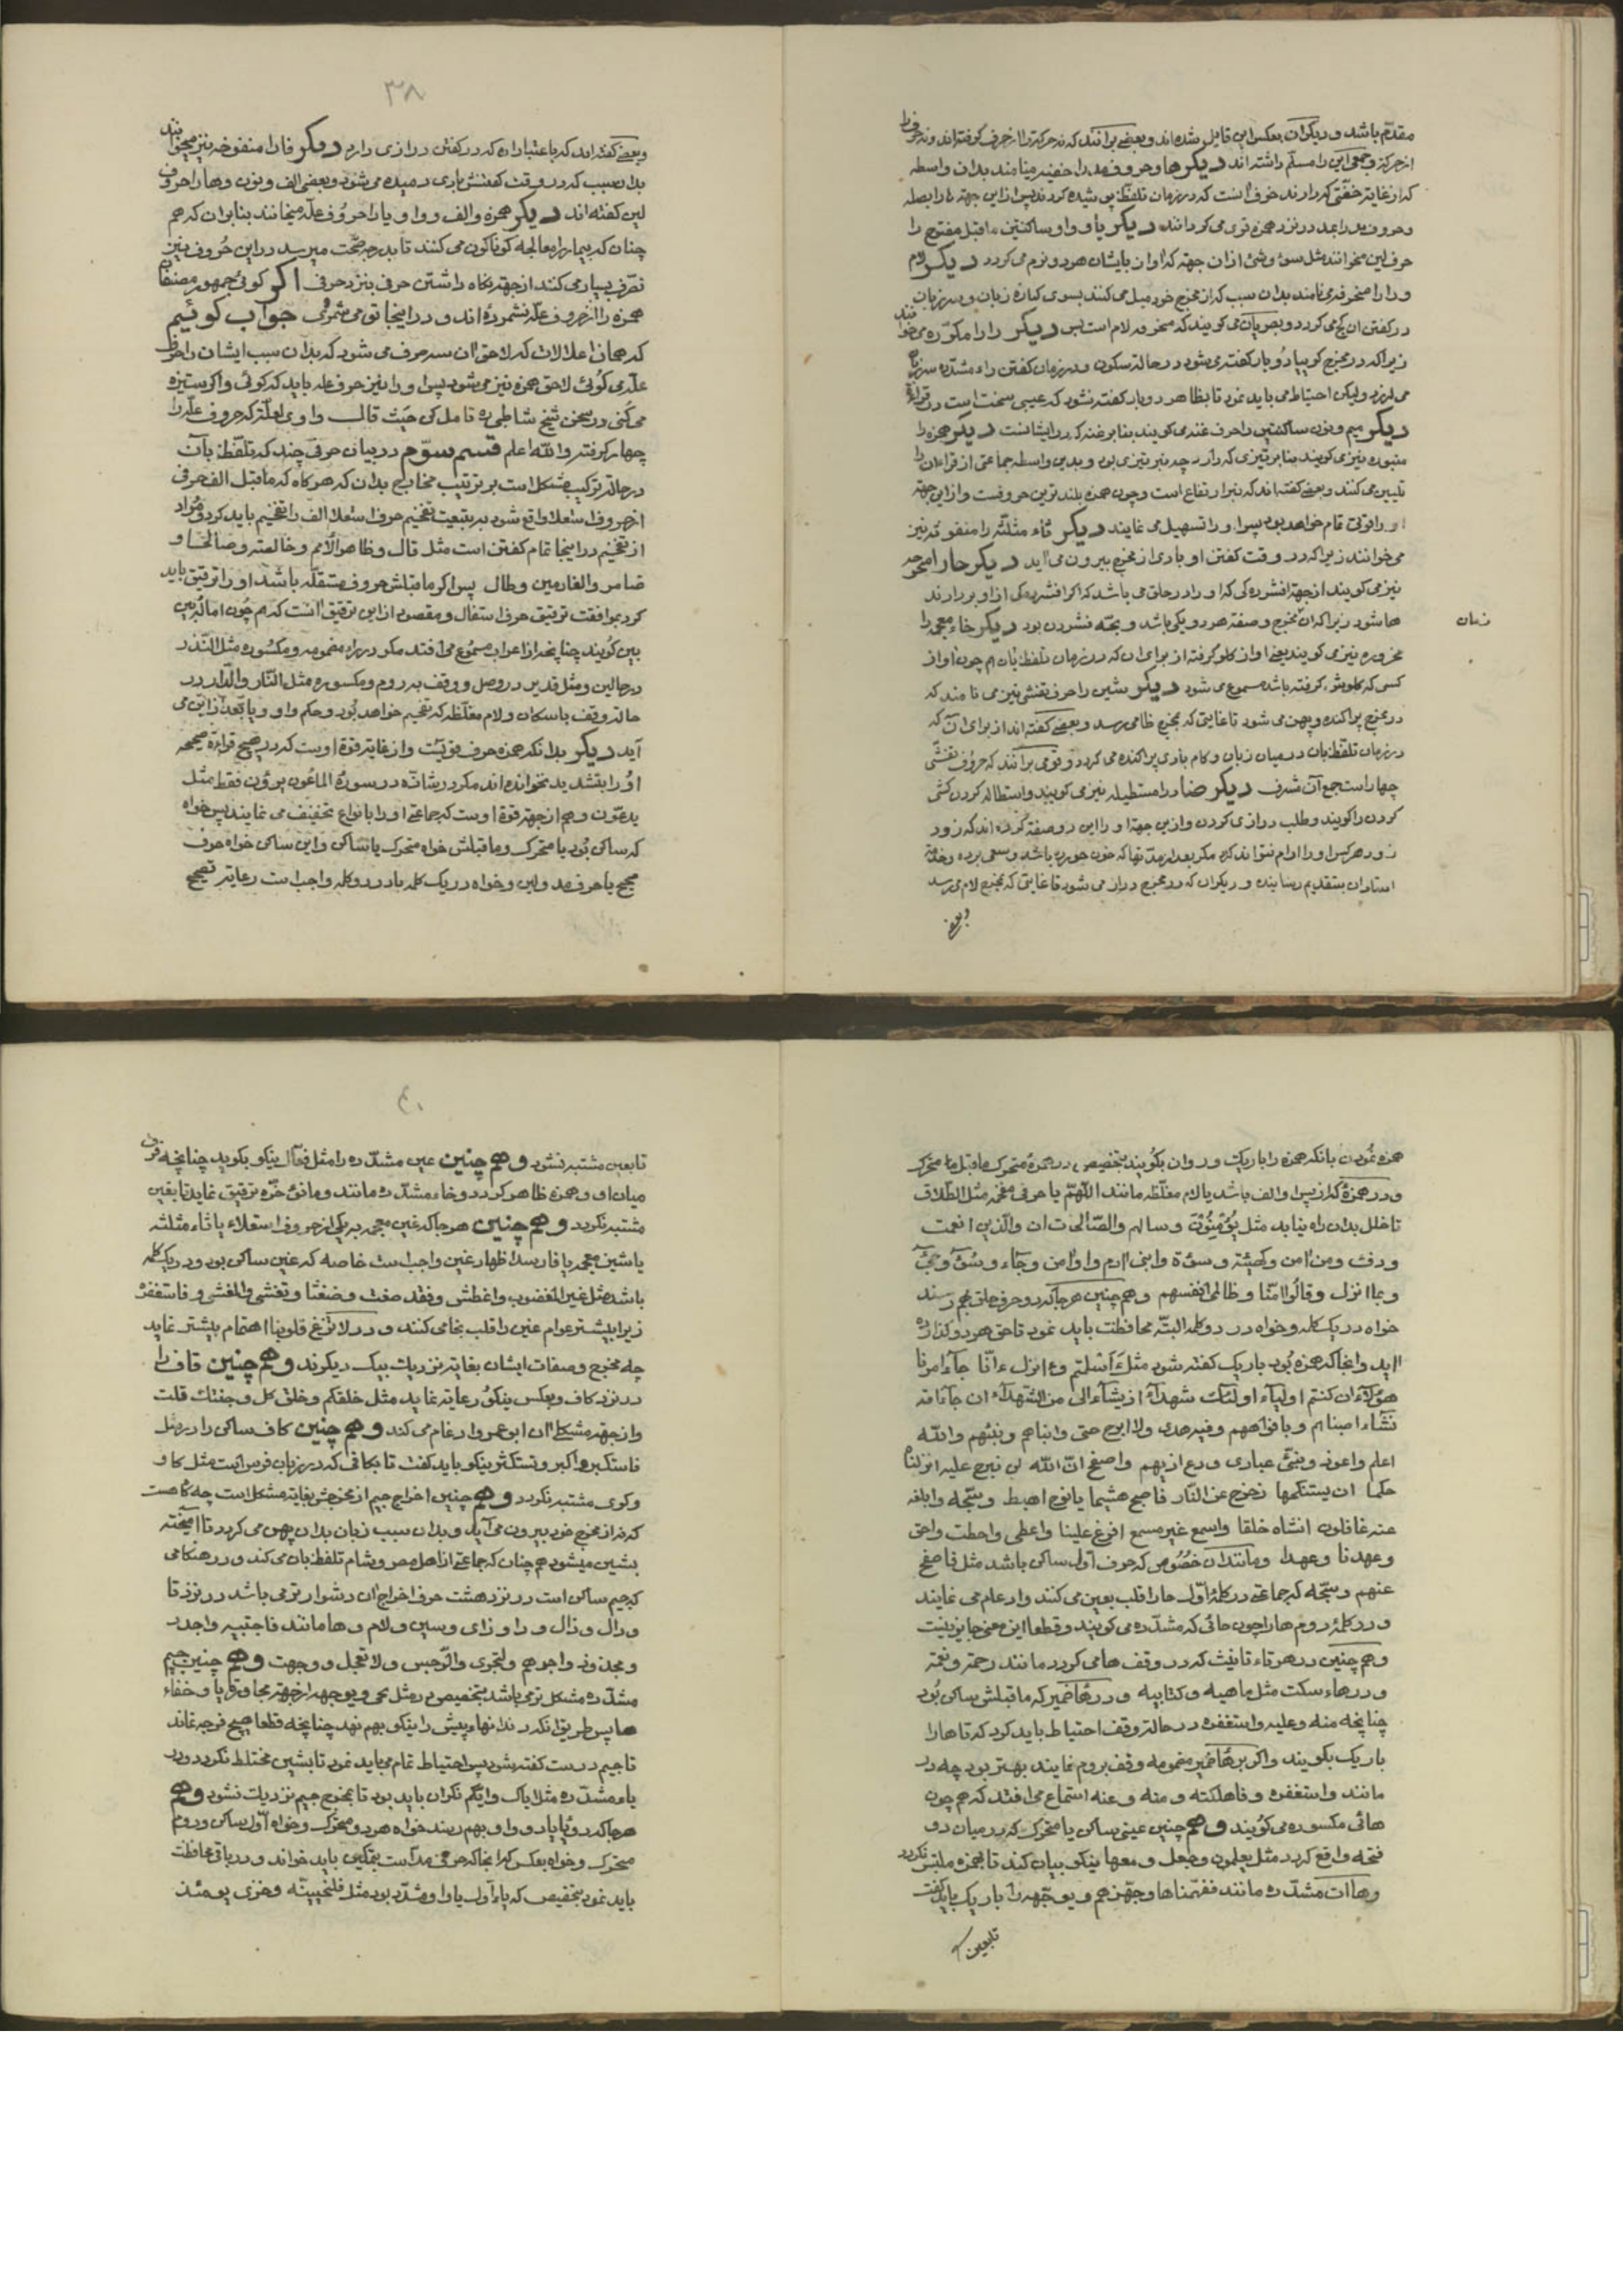 مقدّم باشد و دیکران بعکس این قایل شده‌اند و بعضی برانند که نه حرکترا از حرف کرفته‌اند و نه حرفرا
از حرکة و جمعی این را مسلّم داشته‌اند دیکر ها و حروف مد را خفیه مینامند بدان واسطه
که از غایة خفتی که دارند خوف آنست که در زمان تلفظ پوشیده کردند پس از این جهة ها را بصله
و حروف مد را بمد در نزد همزه قوی می کردانند دیکر یا و واو ساکنتین ماقبل مفتوح را
حرف لین میخوانند مثل سوء و شئ از ان جهة که اواز بایشان هموار و نرم می کردد دیکر لام
و را را منحرفه می نامند بدان سبب که از مخرج خود میل می کنند بسوی کناره زبان و سر زبان
در کفتن ان کج می کردد و بصریان می کویند که منحرفه لام است بس دیکر را را مکرّره می خوانند
زیرا که در مخرج کوییا دو بار کفته می شود در حالت سکون و در زمان کفتن راء مشدّده سر زبان
می لرزد ولیکن احتیاط می باید نمود تا بظاهر دو بار کفته نشود که عیبی سخت است در قراءة
دیکر میم و نون ساکنتین را حرف غنه می کویند بنابر غنه که در ایشانست دیکر همزه را
منبوره نیز می کویند بنابر تیزی که دارد چه نبر تیزی بود و بدین واسطه جماعتی از قراء ان را
تلیین می کنند و بعضی کفته‌اند که نبر ارتفاع است و چون همزه بلند ترین حروفست و از این جهة
او را قوتی تام خواهد بود پس او را تسهیل می نمایند دیکر ثاء مثلثه را منفوثه نیز
می خوانند زیرا که در وقت کفتن او بادی از مخرج بیرون می آید دیکر حا را
نیز می کویند از جهة افشردکی که او را در حلق می باشد که اکر افشردکی از او بردارند
ها شود زیرا که ان مخرج و صفة هر دو یکی باشد و بحّه فشردن بود دیکر خاء معجمه را
نیز می کویند یعنی اواز کلو کرفته از برای ان که در زمان تلفظ بان هم چون اواز
کسی که کلویش کرفته باشد مسموع می شود دیکر شین را حرف تفشی نیز می نامند که
در مخرج پراکنده و پهن می شود تا غایتی که بمخرج ظا می رسد و بعضی کفته‌اند از برای آن که
در زمان تلفظ بان در میان زبان و کام بادی پراکنده می کردد و قومی برانند که حروف تفشّی
چهار است جمع آن شرف دیکر ضاد را مستطیله نیز می کویند و استطاله کردن کشی
کردن را کویند و طلب درازی کردن و از این جهة او را این دو صفة کرده‌اند که زود
زود هر کس او را ادا نتواند کرد مکر بعد از مدتها که خون خورده باشد و سعی برده و خدمة
استادان بتقدیم رسانیده و دیکر ان که در مخرج دراز می شود تا غایتی که بمخرج لام می رسد
وبعضی
زمان
۳۸
و بعضی کفته‌اند که باعتبار ان که در کفتن درازی دارد دیکر فا را منفوخه نیز میخوانند
بدان سبب که در وقت کفتنش بادی دمیده می شود و بعضی الف و نون و ها را حروف
لین کفته‌اند دیکر همزه و الف و واو و یا را حروف علّه میخانند بنابر ان که هم
چنان که بیمار را معالجه کوناکون می کنند تا بدرجه صحّت میرسد در این حروف نیز
تصرّف بسیار می کنند از جهة نکاه داشتن حرفی بنزد حرفی اکر کوئی جمهور مصنفان
همزه را از حروف علّه نشمرده‌اند و در اینجا تو می شمری جواب کوئیم
که همان اعلالات که لاحق ان سه حرف می شود که بدان سبب ایشان را حرف
علّه می کوئی لاحق همزه نیز می شود پس او را نیز حرف علّه باید که کوئی و اکر ستیزه
می کنی در سخن شیخ شاطبی ره تامل کن حیث قال واوی لعلّة که حروف علّه را
چهار کرفته والله اعلم قسم سوّم در بیان حرفی چند که تلفظ بآن
در حالة ترکیب مشکل است بر ترتیب مخارج بدان که هر کاه که ماقبل الف حرفی
از حروف استعلا واقع شود به تبعیت تفخیم حرف استعلا الف را تفخیم باید کرد و مراد
از تفخیم در اینجا تمام کفتن است مثل قال و ظاهر الاثم و خالصة و صالحا و
ضامر والغارمین و طال پس اکر ماقبلش حروف مستفله باشد او را ترقیق باید
کرد بموافقت ترقیق حرف استفال و مقصود از این ترقیق انست که هم چون اماله بین
بین کویند چنانچه از اعراب مسموع می افتد مکر در راء مضمومه و مکسوره مثل النّذر
در حالین و مثل قدیر در وصل و وقف بروم و مکسوره مثل النّار والدّار در
حالة وقف باسکان و لام مغلّظه که تفخیم خواهد بود و حکم واو و یا بعد از این می
آید دیکر بدانکه همزه حرف قویست و از غایة قوة اوست که در هیچ قراءة صحیحه
او را بتشدید نخوانده‌اند مکر در شاذّه در سورهٔ الماعون یرؤن فقط مثل
یدعّون و هم از جهة قوة اوست که جماعتی او را بانواع تخفیف می نمایند پس خواه
که ساکن بود یا متحرک و ماقبلش خواه متحرک یا ساکن و این ساکن خواه حرف
صحیح یا حرف مد و لین و خواه در یک کلمه یا در دو کلمه واجب است رعایة تصحیح
همزه نمودن بانکه همزه را باریک و روان بکویند بتخصیص در همزهٔ متحرک ماقبل ها متحرک
و در همزهٔ که از پس او الف باشد یا لام مغلّظه مانند اللّهمّ یا حرفی مفخمه مثل الطّلاق
تا خلل بدان راه نیابد مثل یؤمنون و سالهم والصّالحات ان والّذین انعمت
ودفء ومن امن وکهیئة و سوءة وابنی ادم و اوامن وجاء وسوء
وبما انزل و قالوا امنّا و ظالمی انفسهم و هم چنین هر جا که دو حرف حلق بهم رسند
خواه در یک کلمه و خواه در دو کلمه البتّه محافظت باید نمود تا حق هر دو کذارده
آید و انجا که همزه بود باریک کفته شود مثل ءاسلمتم وءانزل ءانّا جاء امرنا
هؤلاء ان کنتم اولیاء اولئک شهداء اذ یشاء الی من الشّهداء ان جاء امة
نشاء اصبناهم و بافواههم وفیه هدی ولا ابرح حتی وانباهم ونبئهم والله
اعلم واعوذ ونبّئ عبادی ودع اذیهم واصفح انّ الله لن نبرح علیه انزلناه
حکما ان یستنکحها زحزح عن النّار فاصبح هشیما یا نوح اهبط وسبّحه وابلغه
عنه غافلون انشاه خلقا واسمع غیر مسمع افرغ علینا واعطی واحطت واحق
وعهدنا وعهدا ومانند ان خصوص که حرف اول ساکن باشد مثل فاصفح
عنهم وسبّحه که جماعتی در کلمهٔ اوّل حا را قلب بعین می کنند و ادغام می نمایند
و در کلمهٔ دوم ها را چون حائی که مشدّده می کویند و قطعا این معنی جایز نیست
و هم چنین در هر تاء تانیث که در وقف ها می کردد مانند رحمة و نعمة
و در هاء سکت مثل ماهیه و کتابیه و در هاء ضمیر که ماقبلش ساکن بود
چنانچه منه و علیه و استغفره در حالة وقف احتیاط باید کرد که تا ها را
باریک بکویند و اکر بر هاء ضمیر مضمومه وقف بروم نمایند بهتر بود چه در
مانند و استغفره و فاهلکته و منه و عنه استماع می افتد که هم چون
هائی مکسوره می کویند و هم چنین عینی ساکن یا متحرک که در میان دو
فتحه واقع کردد مثل یعلمون و جعل و معها نیکو بیان کند تا بهمزه ملتبس نکردد
و هاات مشدّده مانند ففهّمناها و جهّزهم و یوجّهه را باریک باید کفت
تابعین
۴۰
تا بعین مشتبه نشود و هم چنین عین مشدّده را مثل فعّال نیکو بکوید چنانچه فرق
میان او و همزه ظاهر کردد و خاء مشدّده مانند و مانؤخّره ترقیق نماید تا بغین
مشتبه نکردد و هم چنین هر جا که غین معجمه بیکی از حروف استعلاء یا ثاء مثلثه
یا شین معجمه یا فا رسد اظهار غین واجب است خاصه که غین ساکن بود و در یک کلمه
باشد مثل غیر المغضوب واغطش وفقد صغت وضغثا وتغشی والمغشی و فاستغفره
زیرا بیشتر عوام غین را قلب بخا می کنند و در لا تزغ قلوبنا اهتمام بیشتر نماید
چه مخرج و صفات ایشان بغایة نزدیک بیک دیکرند و هم چنین قاف را
در نزد کاف و بعکس نیکو رعایة نماید مثل خلقکم وخلق کل و جنتک قلت
و از جهة مشکلی ان ابو عمرو ادغام می کند و هم چنین کاف ساکن را در مثل
فاستکبر و اکبر و تستکثر نیکو باید کفت تا بکافی که در زبان فرس است مثل کاو
و کوی مشتبه نکردد و هم چنین اخراج جیم از مخرجش بغایة مشکل است چه کاه هست
که نه از مخرج خود بیرون می آید و بدان سبب زبان بدان پهن می کردد تا آمیخته
بشین میشود هم چنان که جماعتی از اهل مصر و شام تلفظ بان می کند و در هنکامی
که جیم ساکن است در نزد هشت حرف اخراج ان دشوار تر می باشد در نزد تا
و دال و ذال و را و زای و سین و لام و ها مانند فاجتبیه واجدر
ومجذوذ واجرهم والنجوی والرّجس ولا تعجل ووجهت و هم چنین جیم
مشدّده مشکل تر می باشد بتخصیص در مثل لجی و یوجهه از جهة مجاورة یا و خفاء
ها پس طریق انکه دندانهاء پیش را نیکو بهم نهد چنانچه قطعا هیچ فرجه نماند
تا جیم درست کفته شود پس احتیاط تمام می باید نمود تا بشین مختلط نکردد و در
یاء مشدّده مثل ایاک و ایکم نکران باید بود تا بمخرج جیم نزدیک نشود و هم
هر جا که دو یا یا دو واو بهم رسند خواه هر دو متحرک و خواه اول ساکن و دوم
متحرک و خواه بعکس که انجا که حرفی مد است بتمکین باید خواند و در باقی محافظت
باید نمود بتخصیص که یاء اول یا واو مشدّد بود مثل فلنحیینّه و خزی یومئذ